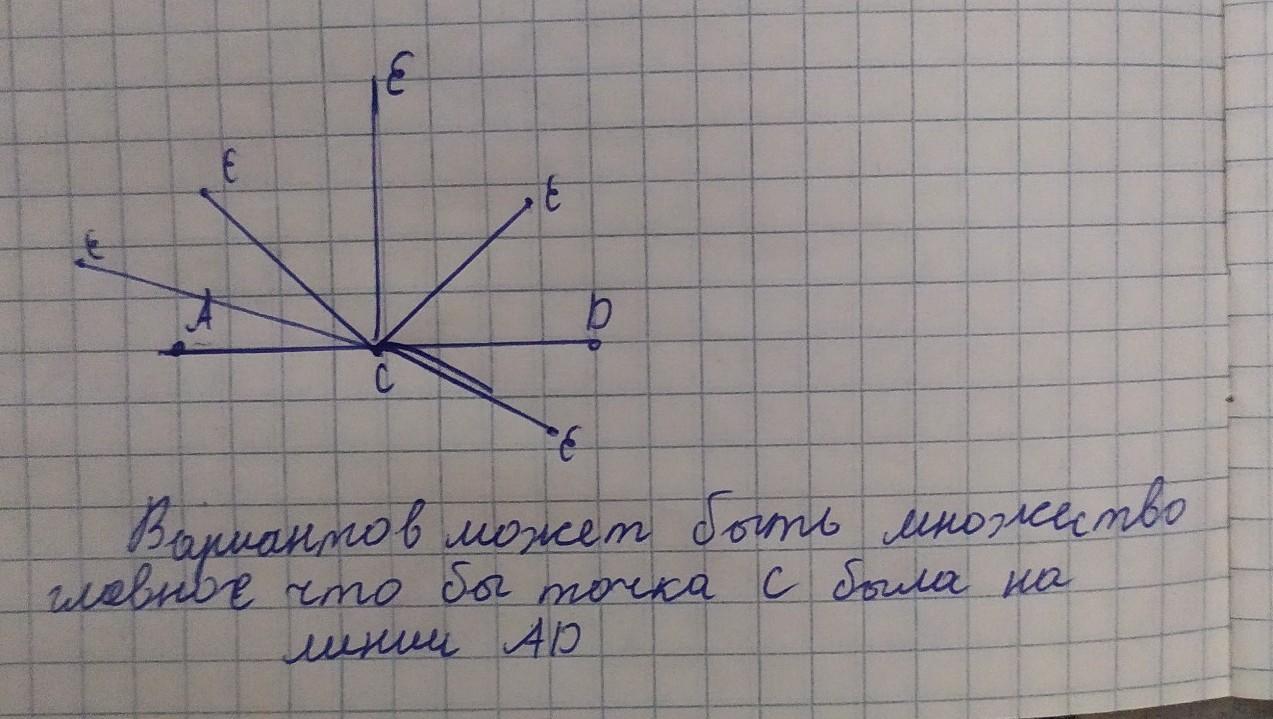 Ɛ
Ɛ
Ɛ
Ɛ
A
D
C
Ɛ
Вариантов может быть множество
главное что бы точка C была на
линии AD